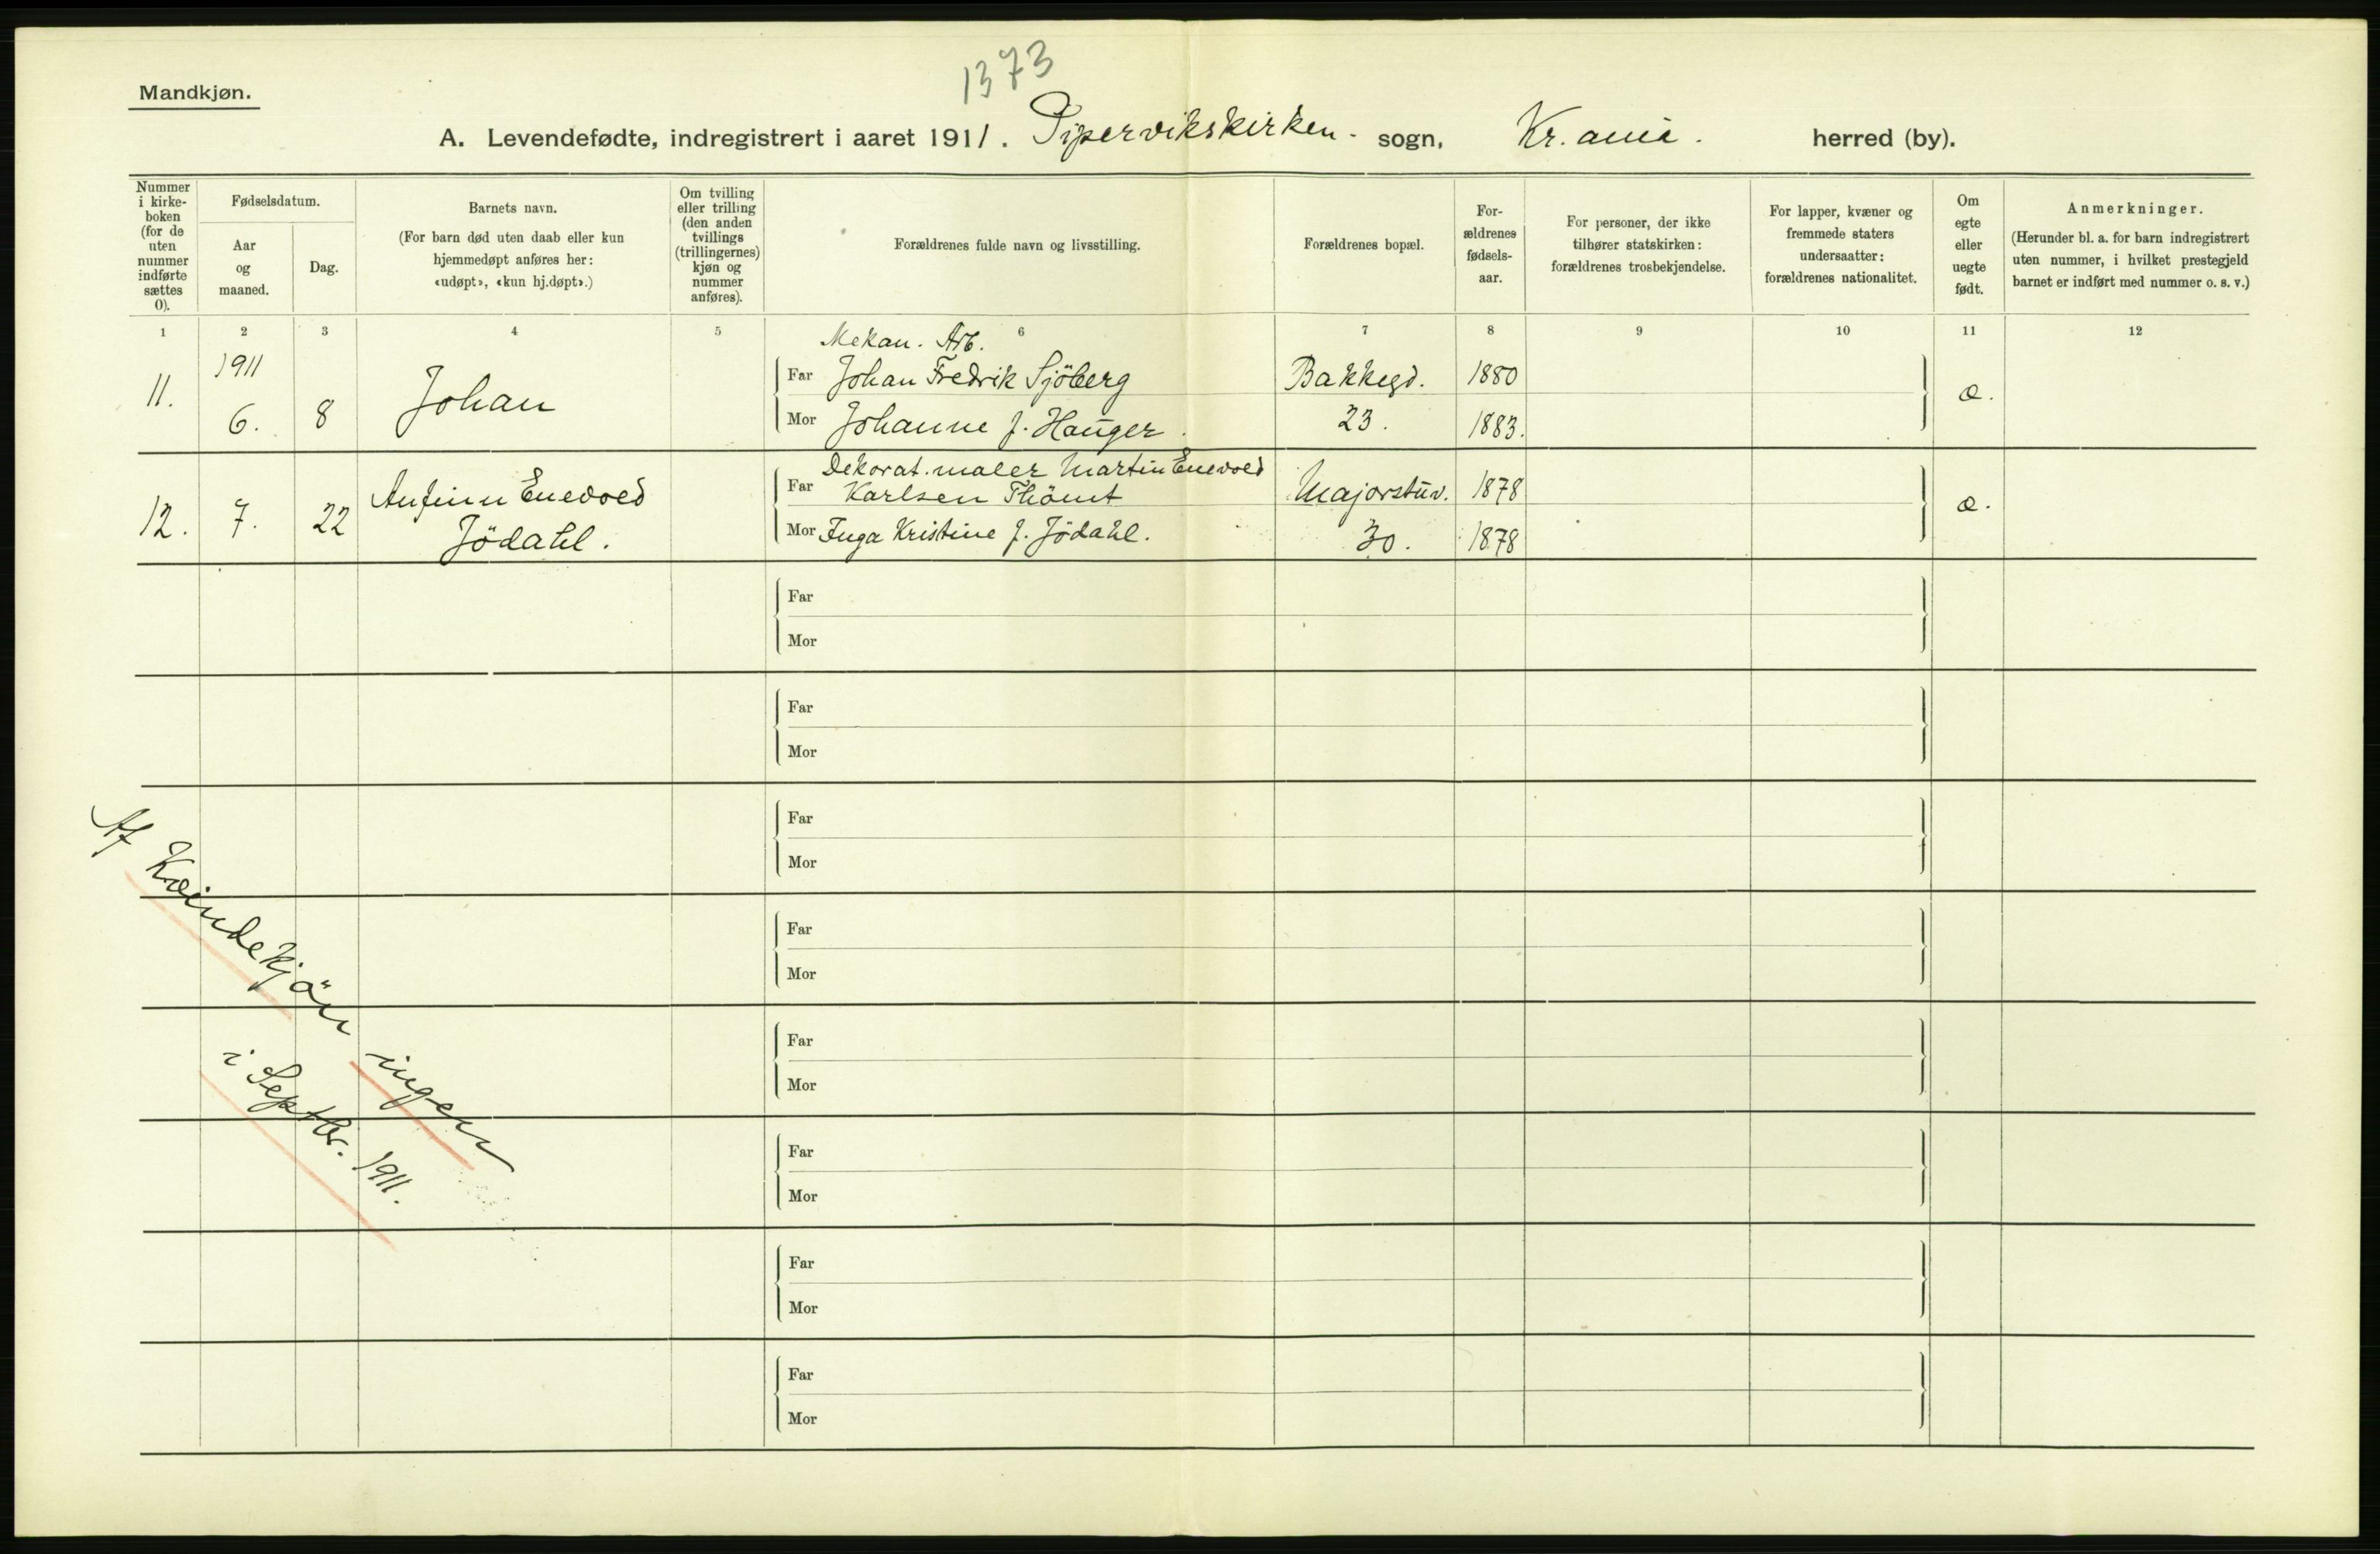 1373
Mandkjøn.
A. Levendefødte, indregistrert i aaret 1911. Pipervikskirken - sogn, Kr.ania. herred (by).
Nummer i kirke-boken (for de uten nummer indførte sættes 0).
Fødselsdatum.
Aar og maaned.
Dag.
Barnets navn.
(For barn død uten daab eller kun hjemmedøpt anføres her: «udøpt», «kun hj.døpt».)
Om tvilling eller trilling (den anden tvillings (trillingernes) kjøn og nummer anføres).
Forældrenes fulde navn og livsstilling.
Forældrenes bopæl.
For-ældrenes fødsels-aar.
For personer, der ikke tilhører statskirken: forældrenes trosbekjendelse.
For lapper, kvæner og fremmede staters undersaatter: forældrenes nationalitet.
Om egte eller uegte født.
Anmerkninger.
(Herunder bl. a. for barn indregistrert uten nummer, i hvilket prestegjeld barnet er indført med nummer o. s. v.)
1 2 3 4 5 6 7 8 9 10 11 12
Mekan. Arb.
1911 Far Johan Fredrik Sjöberg Bakkegd. 1880
11. 6. 8 Johan æ.
Mor Johanne f. Hauger. 23. 1883.
Dekorat.maler Martin Enevold
Anfinn Enevold Far Karlsen Thömt Majorstuv. 1878
12. 7. 22 æ.
Jödahl. Mor Inga Kristine f. Jödahl. 30. 1878
Far
Mor
Far
Mor
Far
Mor
Far
Mor
Far
Mor
Far
Mor
Far
Mor
Far
Mor
Af Kvindekjön ingen
i Septbr. 1911.